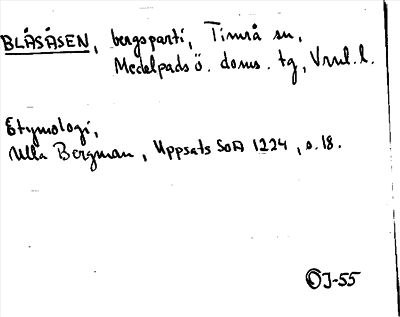 BLÅSÅSEN, bergsparti, Timrå sn,
Medelpads ö. doms. tg, Vrnl. l.
Etymologi,
Ulla Bergman, Uppsats SOA 1224, s. 18.
OJ-55